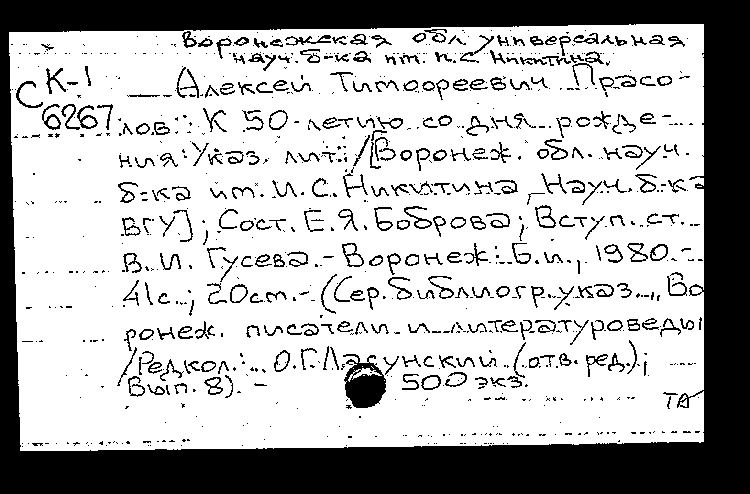 Воронежская обл универсальная
науч. б-ка им. И.С. Никитина.
К-1
С 6267
Алексей Тимофеевич Прасо-
лов: К 50-летию со дня рожде-
ния: Указ. лит. / [Воронеж. обл. науч.
б-ка им. И.С. Никитина, Науч. б-ка
ВГУ]; Сост. Е.Я. Боброва; Вступ. ст.
В.И. Гусева. - Воронеж: Б.и., 1980. -
41с.; 20см. - (Сер. библиогр. указ. „Во
ронеж. писатели и литературоведы
/ Редкол.: О.Г. Ласунский (отв. ред.);
Вып. 8). - 500 экз.
ТА